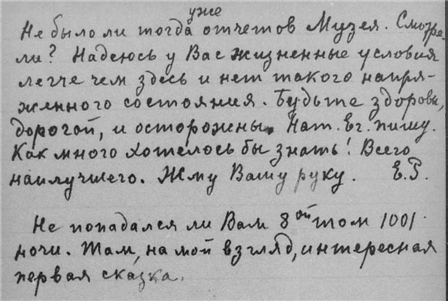 уже
Не было ли тогда отчетов Музея. Смотре-
ли? Надеюсь у Вас жизненные условия
легче чем здесь и нет такого напря-
женного состояния. Будьте здоровы,
дорогой, и осторожны. Нат. Ег. пишу.
Как много хотелось бы знать! Всего
наилучшего. Жму Вашу руку. Е.Р.
Не попадался ли Вам 8ой том 1001
ночи. Там, на мой взгляд, интересная
первая сказка.